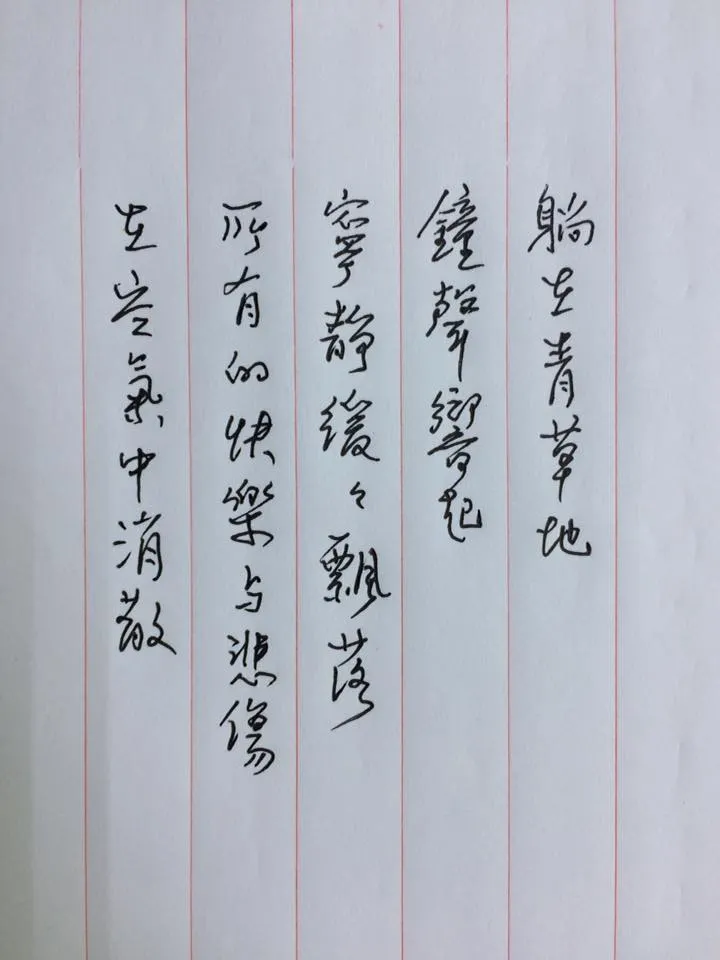 躺在青草地
鐘聲響起
寧靜緩々飄落
所有的快樂与悲傷
在空氣中消散